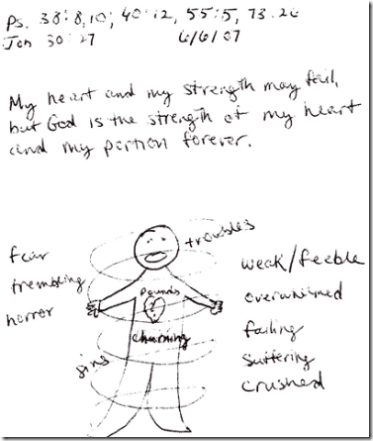 Ps. 38:8,10; 40:12, 55:5, 73.26
Job 30:27 6/6/07
My heart and my strength may fail,
but God is the strength of my heart
and my portion forever.
troubles
fear
trembling
horror
pounds
churning
sins
weak/feeble
overwhelmed
failing
suffering
crushed